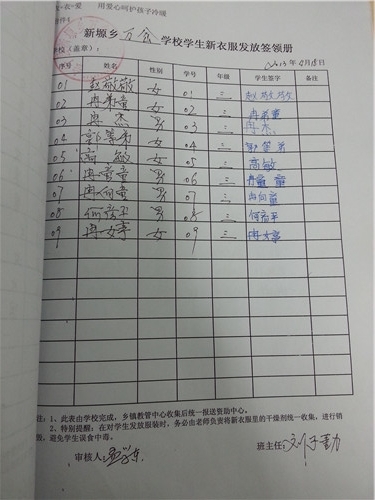 衣·爱 用爱心呵护孩子冷暖
新塬乡万会学校学生新衣服发放签领册
学校（盖章）： 2013年12月18日
序号 姓名 性别 学号 年级 学生签字 备注
01 赵敬敬 女 01 二 赵敬敬
02 冉希童 女 02 二 冉希童
03 冉杰 男 03 二 冉杰
04 郭等弟 女 04 二 郭等弟
05 高敏 女 05 二 高敏
06 冉童童 男 06 三 冉童童
07 冉向童 男 07 三 冉向童
08 男 08 三
09 冉女事 女 09 三 冉女事
注：1、此表由学校完成，乡镇教管中心收集后统一报送资助中心。
2、特别提醒：在对学生发放服装时、务必由老师负责将新衣服里的干燥剂统一收集，进行销
毁，避免学生误食中毒。
班主任：刘子勤
审核人：